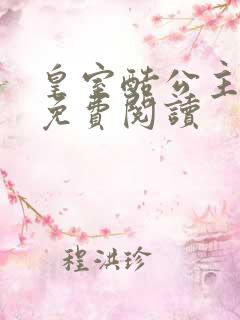 皇室酷公主
免費閱讀
程洪珍